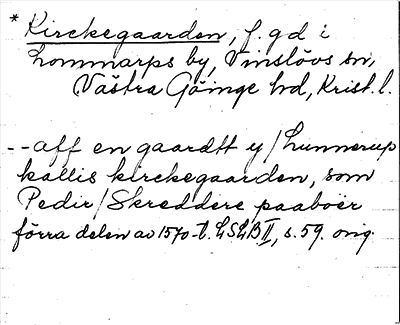 * Kirckegaarden, f. gd i
Lommarps by, Vinslövs sn,
Västra Göinge hd, Krist. l.
-- aff en gaardtt y / Lunnerup
kallis kirckegaarden, som
Pedir / Skreddere paaboer
förra delen av 1570-t. LSLB II, s. 59. orig.